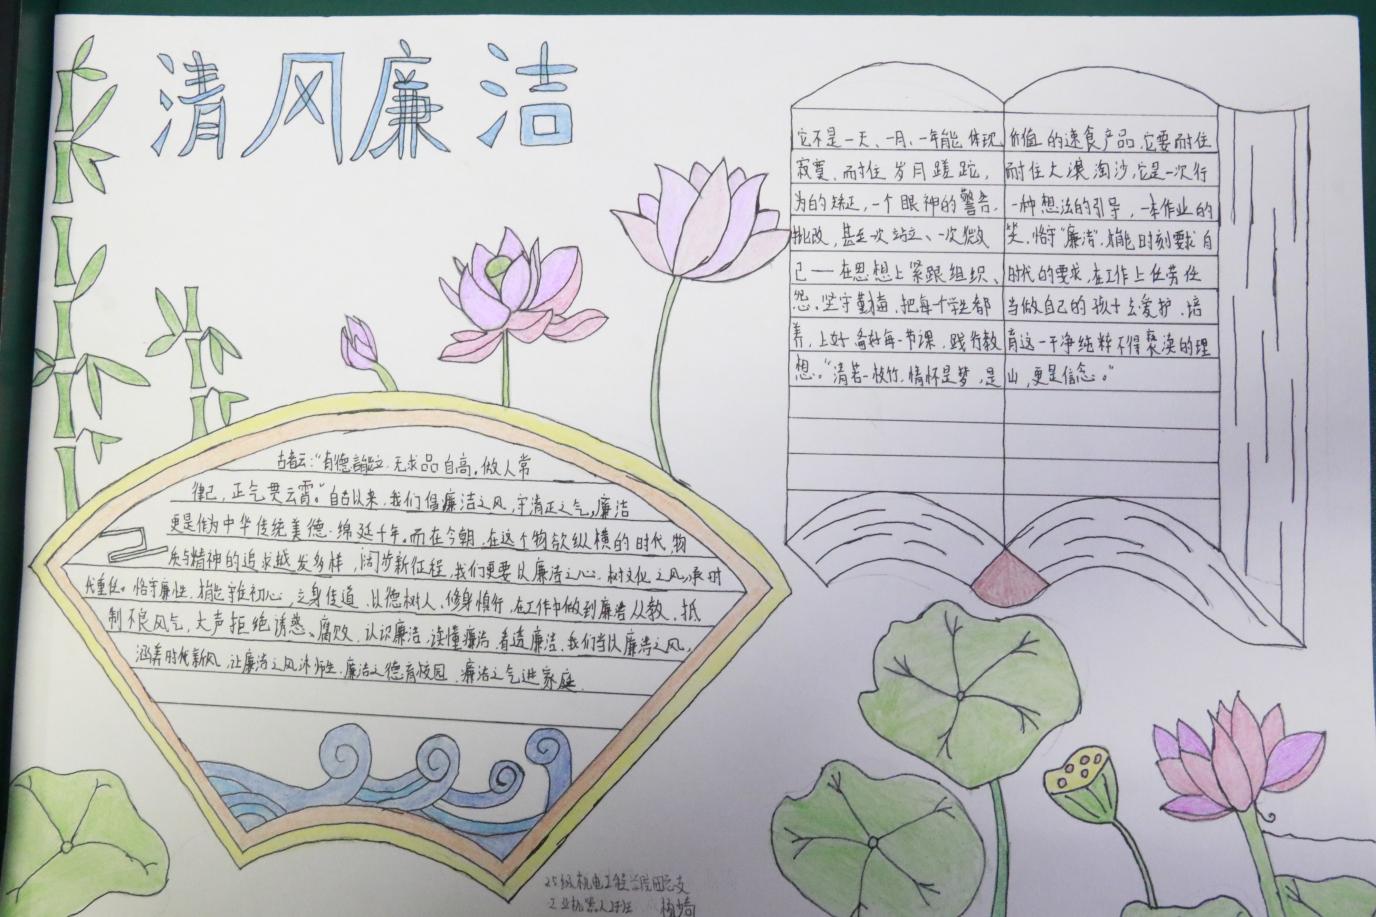 清风廉洁
古者云：“有德才能立，无求品自高。做人常
律己，正气贯云霄。”自古以来，我们倡廉洁之风，守清正之气，廉洁
更是作为中华传统美德，绵延千年。而在今朝，在这个物欲纵横的时代，物
质与精神的追求越发多样，阔步新征程，我们更要以廉洁之心，树文化之风，承时
代重任。恪守廉性，才能守住初心，立身佳道，以德树人，修身慎行，在工作中做到廉洁从教，抵
制不良风气，大声拒绝诱惑、腐败，认识廉洁，读懂廉洁，看透廉洁，我们当以廉洁之风，
涵养时代新风，让廉洁之风沐师生，廉洁之德育校园，廉洁之气进家庭
它不是一天、一月、一年能体现价值的速食产品，它要耐住
寂寞，耐住岁月蹉跎，耐住大浪淘沙，它是一次行
为的矫正，一个眼神的警告，一种想法的引导，一本作业的
批改，甚至一次站立、一次微笑，恪守“廉洁”，才能时刻要求自
己——在思想上紧跟组织、时代的要求，在工作上任劳任
怨，坚守勤勉，把每个学生都当做自己的孩子去爱护、培
养，上好备好每一节课，践行教育这一干净纯粹不得亵渎的理
想。“清若一枝竹，情怀是梦，是山，更是信念。”
25级机电工程学院团总支
工业机器人 班 杨